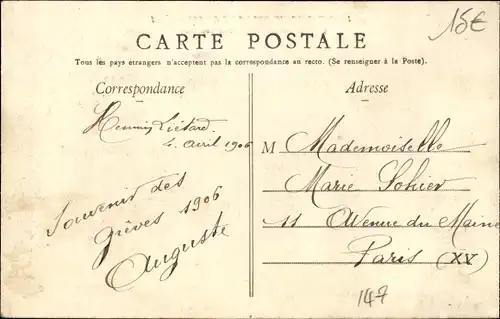 15€
CARTE POSTALE
Tous les pays étrangers n'acceptent pas la correspondance au recto. (Se renseigner à la Poste).
Correspondance
Hennin Liétard
4. avril 1906
Souvenir des
grèves 1906
Auguste
Adresse
M Mademoiselle
Marie Sohier
11 Avenue du Maine
Paris (XV)
147